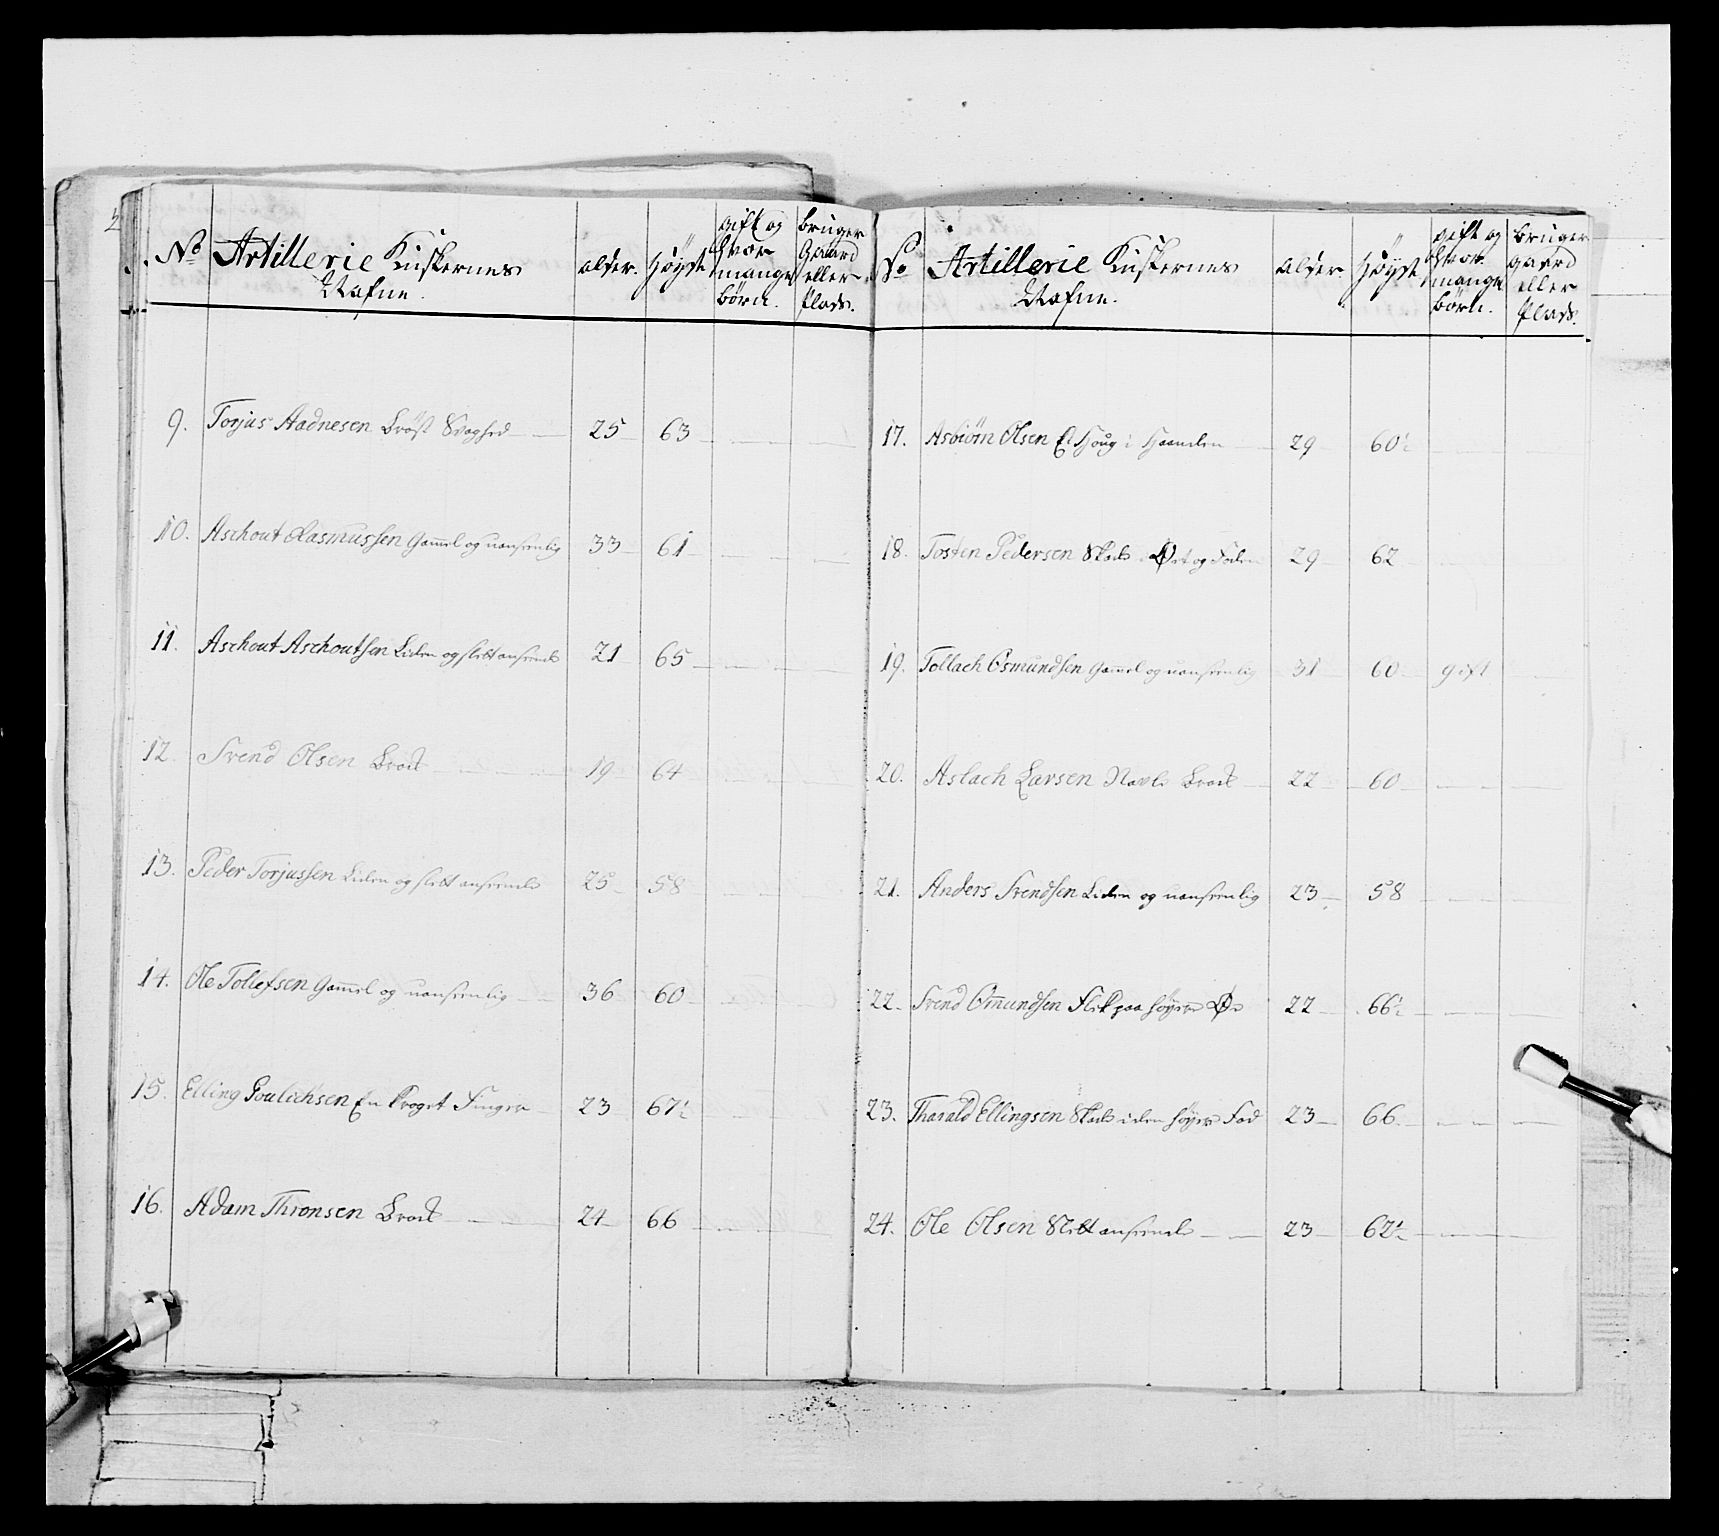 No Artillerie Kuskernes Nafne. alder. Høyde gift og hvor mange börn. bruger Gaard eller Plads.
9. Torjus Aadnesen Bröst Svaghed 25 63
10. Aschout Rasmussen Gammel og uanseenlig 33 61
11. Aschout Aschoutsen Liden og slett anseende 21 65
12. Svend Olsen Brock 19 64
13. Peder Torjussen Liden og slett anseende 25 58
14. Ole Tollefsen Gammel og uanseenlig 36 60
15. Elling Poulichsen En kroget Finger 23 67½
16. Adam Thronsen Brock 24 66
No Artillerie Kuskernes Nafne. alder. Høyde gift og hvor mange börn. bruger gaard eller Plads.
17. Asbiörn Olsen Et Houg i Haanden 29 60½
18. Tosten Pedersen Skade Øret og Foden 29 62
19. Tollach Osmundsen Gammel og uanseenlig 31 60 gift
20. Aslach Larsen Navle Brock 22 60
21. Anders Svendsen Liden og uanseenlig 23 58
22. Svend Omundsen Flik paa høyre Øye 22 66½
23. Tharald Ellingsen Skade i den høyre Fod 23 66
24. Ole Olsen Slett anseende 23 62½